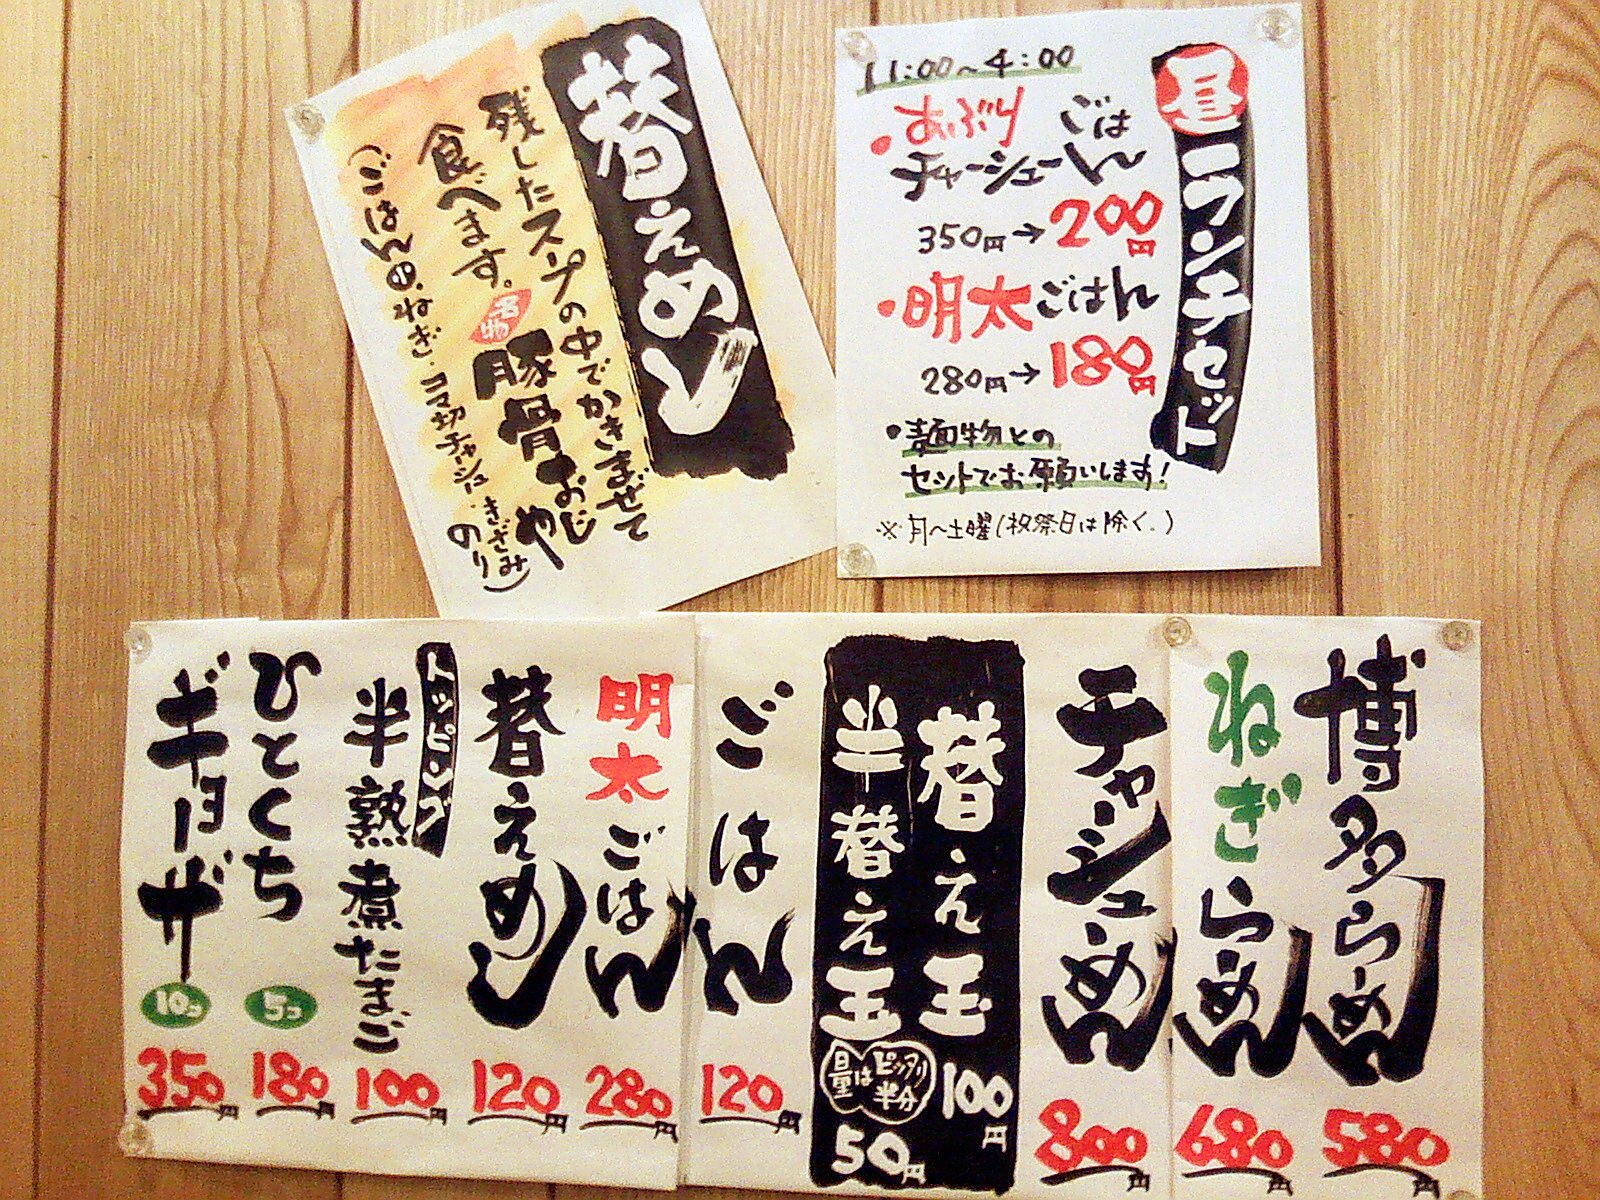 替えめし
残したスープの中でかきまぜて
食べます。名物豚骨おじや
(ごはん小.ねぎ.コマ切チャーシュー.きざみのり)
昼ランチセット
11:00~4:00
・あぶり
チャーシューごはん
350円→200円
・明太ごはん
280円→180円
・麺物との
セットでお願いします!
※月~土曜(祝祭日は除く。)
博多らーめん
580円
ねぎらーめん
680円
チャーシューめん
800円
替え玉
100円
半替え玉
量はピッタリ半分
50円
ごはん
120円
明太ごはん
280円
替えめし
120円
トッピング
半熟煮たまご
100円
ひとくち
ギョーザ
5コ
180円
10コ
350円